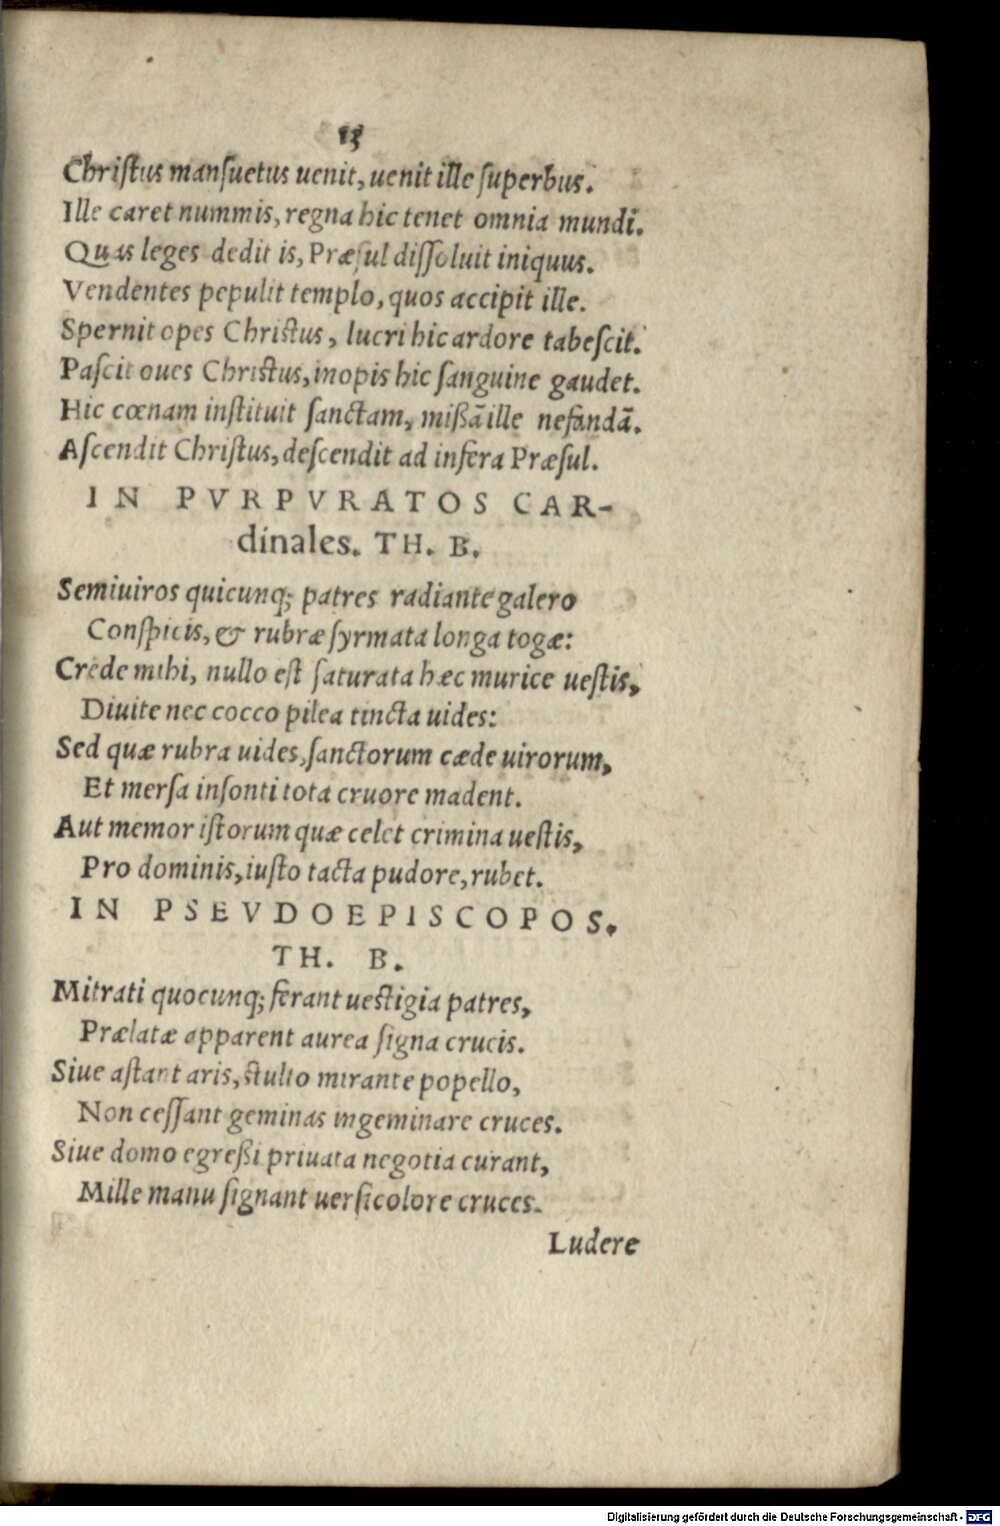 13
Chriſtus manſuetus uenit, uenit ille ſuperbus.
Ille caret nummis, regna hic tenet omnia mundi.
Quas leges dedit is, Præſul diſſoluit iniquus.
Vendentes pepulit templo, quos accipit ille.
Spernit opes Chriſtus, lucri hic ardore tabeſcit.
Paſcit oues Chriſtus, inopis hic ſanguine gaudet.
Hic cœnam inſtituit ſanctam, mißā ille nefandā.
Aſcendit Chriſtus, deſcendit ad infera Præſul.
IN PVRPVRATOS CAR-
dinales. TH. B.
Semiuiros quicunq; patres radiante galero
Conſpicis, & rubræ ſyrmata longa togæ:
Crede mihi, nullo eſt ſaturata hæc murice ueſtis,
Diuite nec cocco pilea tincta uides:
Sed quæ rubra uides, ſanctorum cæde uirorum,
Et merſa inſonti tota cruore madent.
Aut memor iſtorum quæ celet crimina ueſtis,
Pro dominis, iuſto tacta pudore, rubet.
IN PSEVDOEPISCOPOS.
TH. B.
Mitrati quocunq; ferant ueſtigia patres,
Prælatæ apparent aurea ſigna crucis.
Siue aſtant aris, ſtulto mirante popello,
Non ceſſant geminas ingeminare cruces.
Siue domo egreßi priuata negotia curant,
Mille manu ſignant uerſicolore cruces.
Ludere
Digitalisierung gefördert durch die Deutsche Forschungsgemeinschaft - DFG